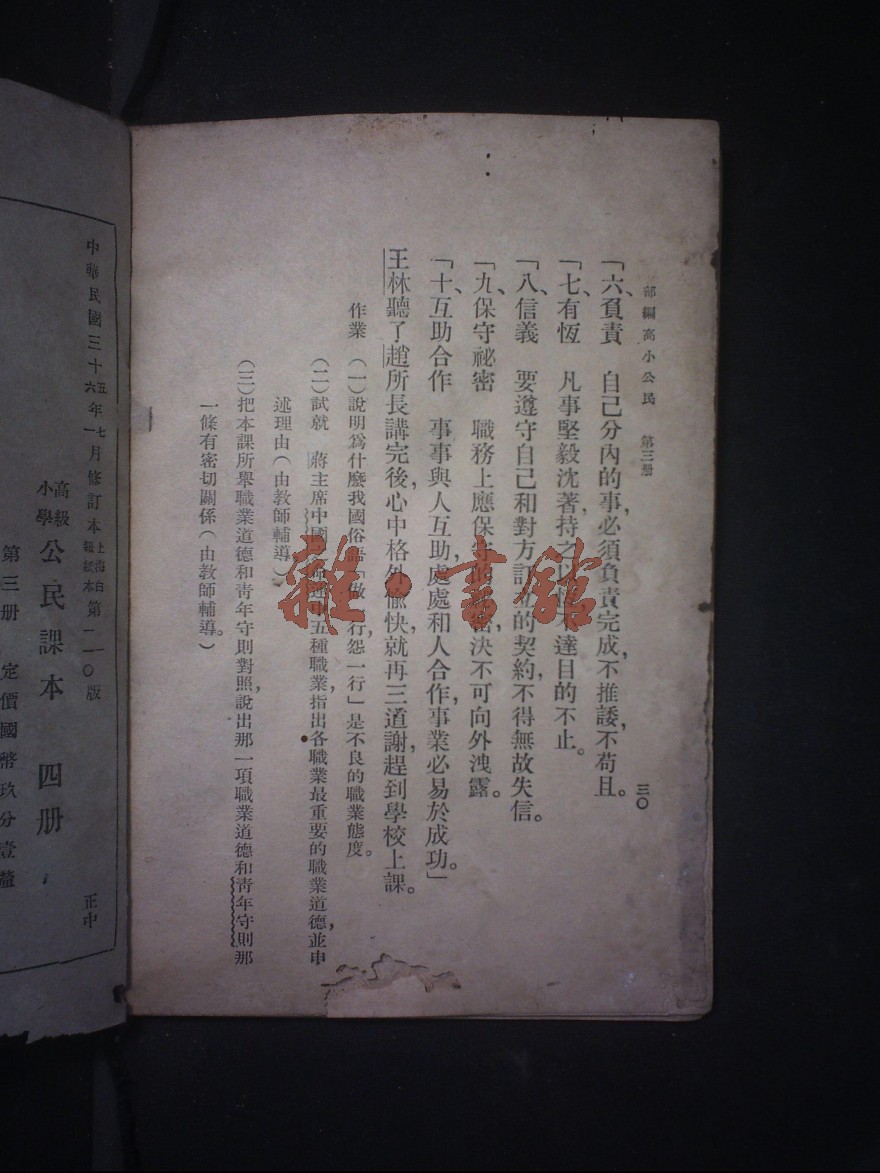 部編高小公民　第三册
三〇
「六、負責　自己分內的事，必須負責完成，不推諉，不苟且。
「七、有恆　凡事堅毅沈著，持之以　達目的不止。
「八、信義　要遵守自己和對方訂立的契約，不得無故失信。
「九、保守祕密　職務上應保守的　密，決不可向外洩露。
「十、互助合作　事事與人互助，處處和人合作，事業必易於成功。」
王林聽了趙所長講完後，心中格外愉快，就再三道謝，趕到學校上課。
作業　（一）說明爲什麽我國俗語「做一行，怨一行」是不良的職業態度。
（二）試就　蔣主席中國之命運中五種職業，指出各職業最重要的職業道德，並申
述理由（由教師輔導）
（三）把本課所舉職業道德和青年守則對照，說出那一項職業道德和青年守則那
一條有密切關係（由教師輔導。）
雜·書館
中華民國三十五六年七一月修訂本　上海白報紙本　第二一〇版
高級小學　公民課本　四册
第三册　定價國幣玖分壹釐
正中